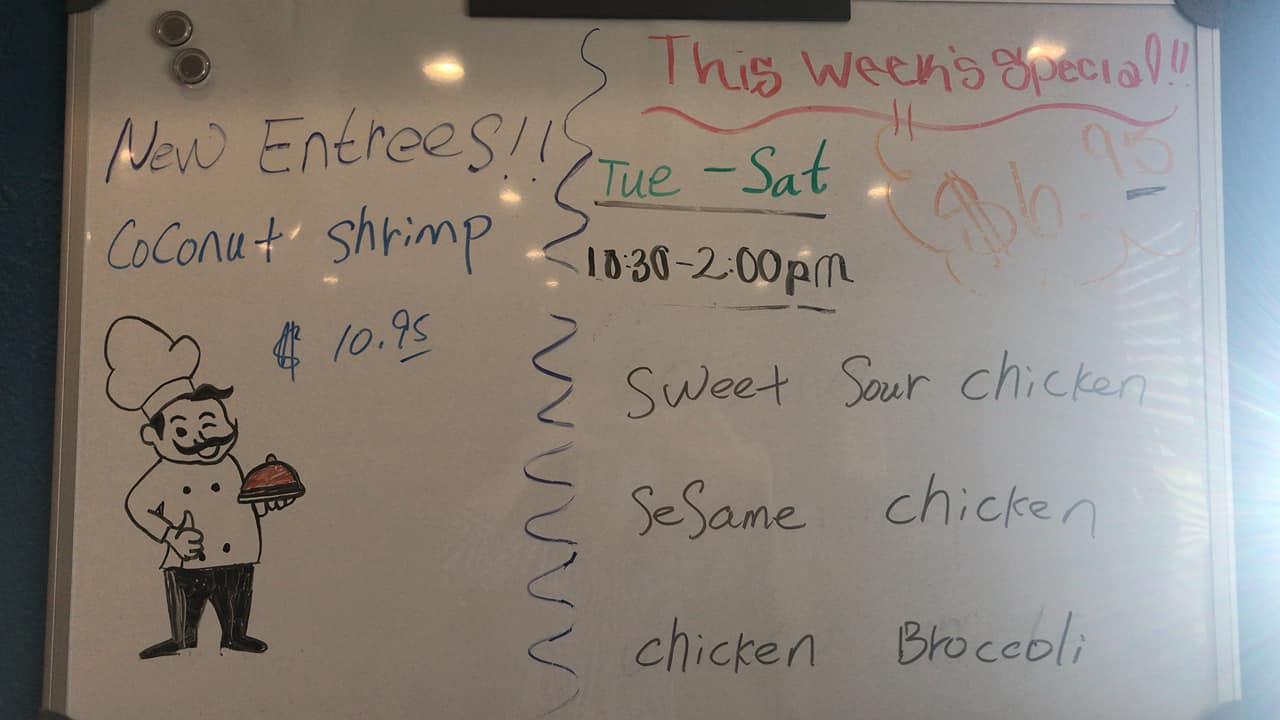 New Entrees!!
Coconut shrimp
$ 10.95
This Week's Special!!
Tue - Sat
$6.95
10:30-2:00pm
Sweet Sour chicken
SeSame chicken
chicken Broccoli